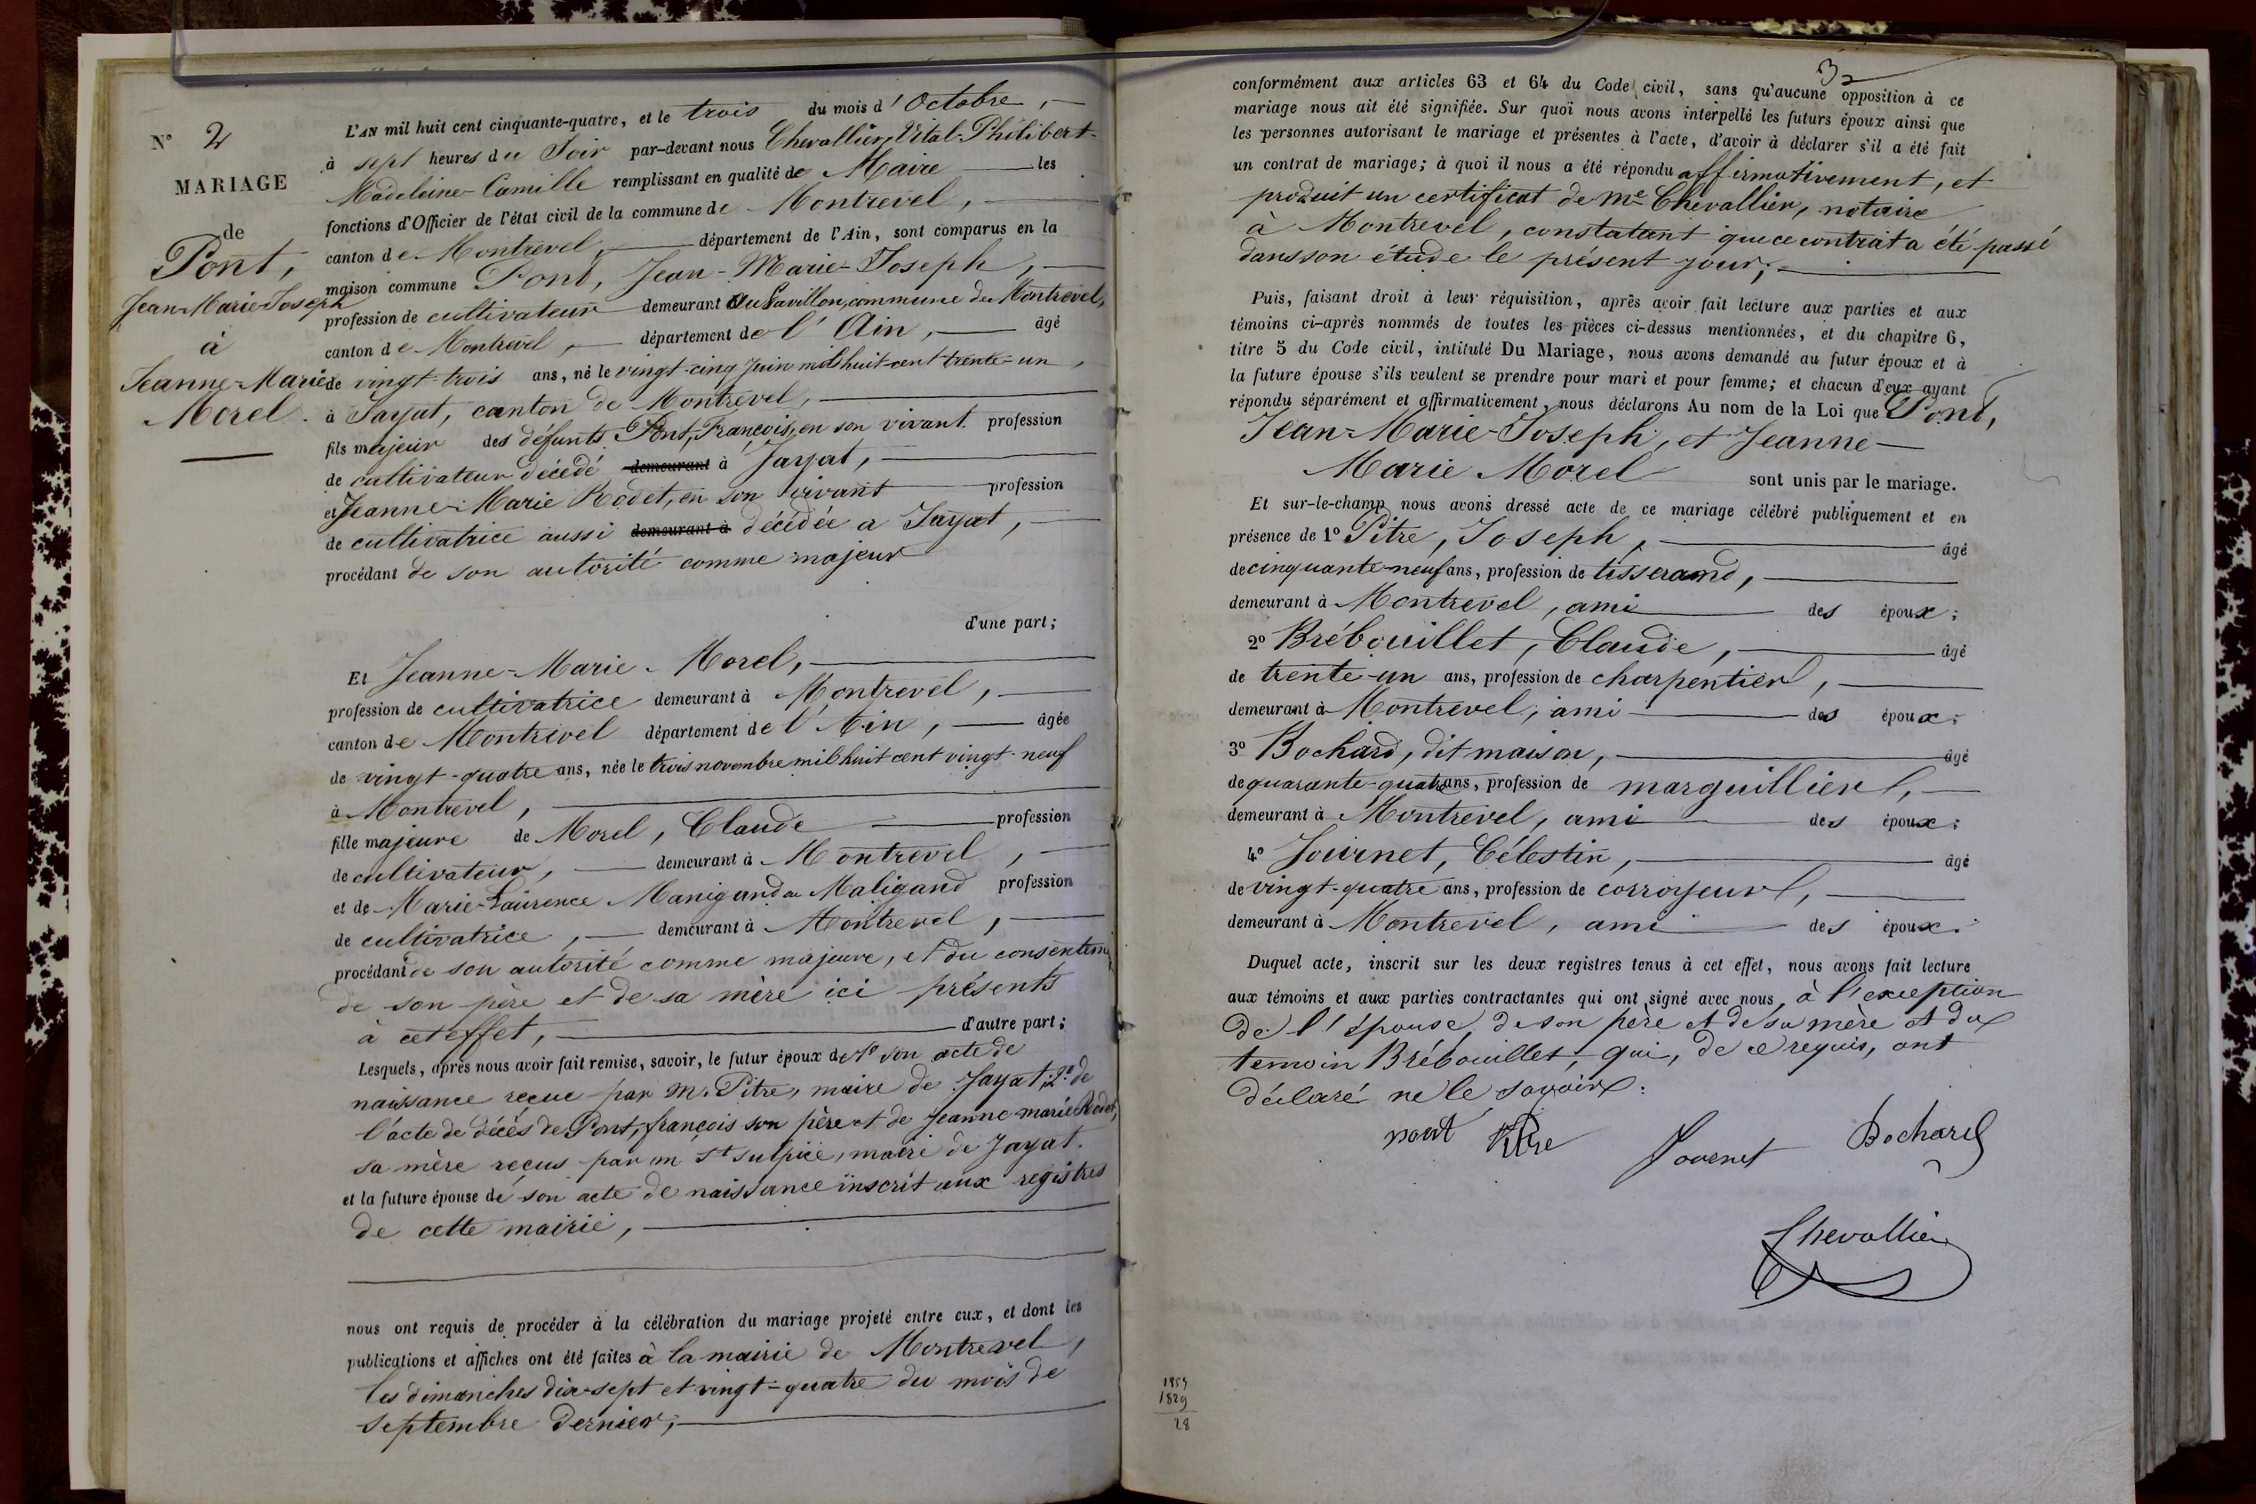 N° 2
MARIAGE
de
Pont,
Jean-Marie-Joseph
à
Jeanne-Marie
Morel.
L'AN mil huit cent cinquante-quatre, et le trois du mois d'Octobre,
à sept heures du Soir par-devant nous Chevallier, Vital-Philibert-
Madeleine-Camille remplissant en qualité de Maire les
fonctions d'Officier de l'état civil de la commune de Montrevel,
canton de Montrevel, département de l'Ain, sont comparus en la
maison commune Pont, Jean-Marie-Joseph,
profession de cultivateur demeurant au Pavillon, commune de Montrevel,
canton de Montrevel, département de l'Ain, âgé
de vingt-trois ans, né le vingt-cinq Juin mil huit-cent trente-un,
à Jayat, canton de Montrevel,
fils majeur des défunts Pont, François, en son vivant profession
de cultivateur décédé demeurant à Jayat,
et Jeanne-Marie Rodet, en son vivant profession
de cultivatrice aussi demeurant à décédée a Jayat,
procédant de son autorité comme majeur
d'une part;
Et Jeanne-Marie-Morel,
profession de cultivatrice demeurant à Montrevel,
canton de Montrevel département de l'Ain, âgée
de vingt-quatre ans, née le trois novembre mil huit cent vingt-neuf
à Montrevel,
fille majeure de Morel, Claude profession
de cultivateur, demeurant à Montrevel,
et de Marie-Laurence Manigand ou Maligand profession
de cultivatrice, demeurant à Montrevel,
procédant de son autorité comme majeure, et du consentem
de son père et de sa mère ici présents
à cet effet, d'autre part;
Lesquels, après nous avoir fait remise, savoir, le futur époux de 1° son acte de
naissance reçue par M. Pitre, maire de Jayat, 2° de
l'acte de décès de Pont, françois son père et de Jeanne marie Rodet,
sa mère reçus par m St sulpice, maire de Jayat.
et la future épouse de son acte de naissance inscrit aux registres
de cette mairie,
nous ont requis de procéder à la célébration du mariage projeté entre eux, et dont les
publications et affiches ont été faites à la mairie de Montrevel,
les dimanches dix-sept et vingt-quatre du mois de
septembre dernier,
conformément aux articles 63 et 64 du Code civil, sans qu'aucune opposition à ce
mariage nous ait été signifiée. Sur quoi nous avons interpellé les futurs époux ainsi que
les personnes autorisant le mariage et présentes à l'acte, d'avoir à déclarer s'il a été fait
un contrat de mariage; à quoi il nous a été répondu affirmativement, et
produit un certificat de Me Chevallier, notaire
à Montrevel, constatant que ce contrat a été passé
dans son étude le présent jour;
Puis, faisant droit à leur réquisition, après avoir fait lecture aux parties et aux
témoins ci-après nommés de toutes les pièces ci-dessus mentionnées, et du chapitre 6,
titre 5 du Code civil, intitulé Du Mariage, nous avons demandé au futur époux et à
la future épouse s'ils veulent se prendre pour mari et pour femme; et chacun d'eux ayant
répondu séparément et affirmativement, nous déclarons Au nom de la Loi que Pont,
Jean-Marie-Joseph, et Jeanne-
Marie Morel sont unis par le mariage.
Et sur-le-champ nous avons dressé acte de ce mariage célébré publiquement et en
présence de 1° Pitre, Joseph, âgé
de cinquante-neuf ans, profession de tisserand,
demeurant à Montrevel, ami des époux;
2° Brébouillet, Claude, âgé
de trente-un ans, profession de charpentier,
demeurant à Montrevel, ami des époux;
3° Bochard, dit maison, âgé
de quarante-quatre ans, profession de marguillier,
demeurant à Montrevel, ami des époux;
4° Journet, Célestin, âgé
de vingt-quatre ans, profession de corroyeur,
demeurant à Montrevel, ami des époux.
Duquel acte, inscrit sur les deux registres tenus à cet effet, nous avons fait lecture
aux témoins et aux parties contractantes qui ont signé avec nous, à l'exception
de l'épouse, de son père et de sa mère et du
temoin Brébouillet, qui, de ce requis, ont
déclaré ne le savoir.
pont Pitre Journet Bochard
Chevallier
1854
1829
28